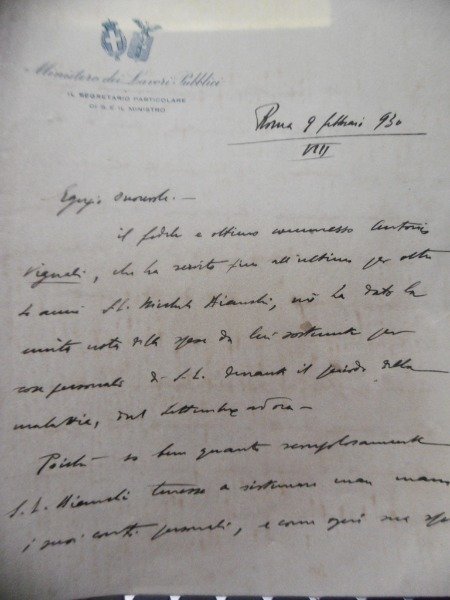 Ministero dei Lavori Pubblici
IL SEGRETARIO PARTICOLARE
DI S. E. IL MINISTRO
Roma 9 febbraio 930
VIII
Egregio Onorevole. —
il fedele e ottimo commesso Antonio
Vignali, che ha servito fino all'ultimo per oltre
4 anni S.E. Michele Bianchi, mi ha dato la
unita nota delle spese da lui sostenute per
cose personali di S.E. durante il periodo della
malattia, dal Settembre ad ora —
Poichè so ben quanto scrupolosamente
S.E. Bianchi tenesse a sistemare man mano
i suoi conti personali, e come ogni sua